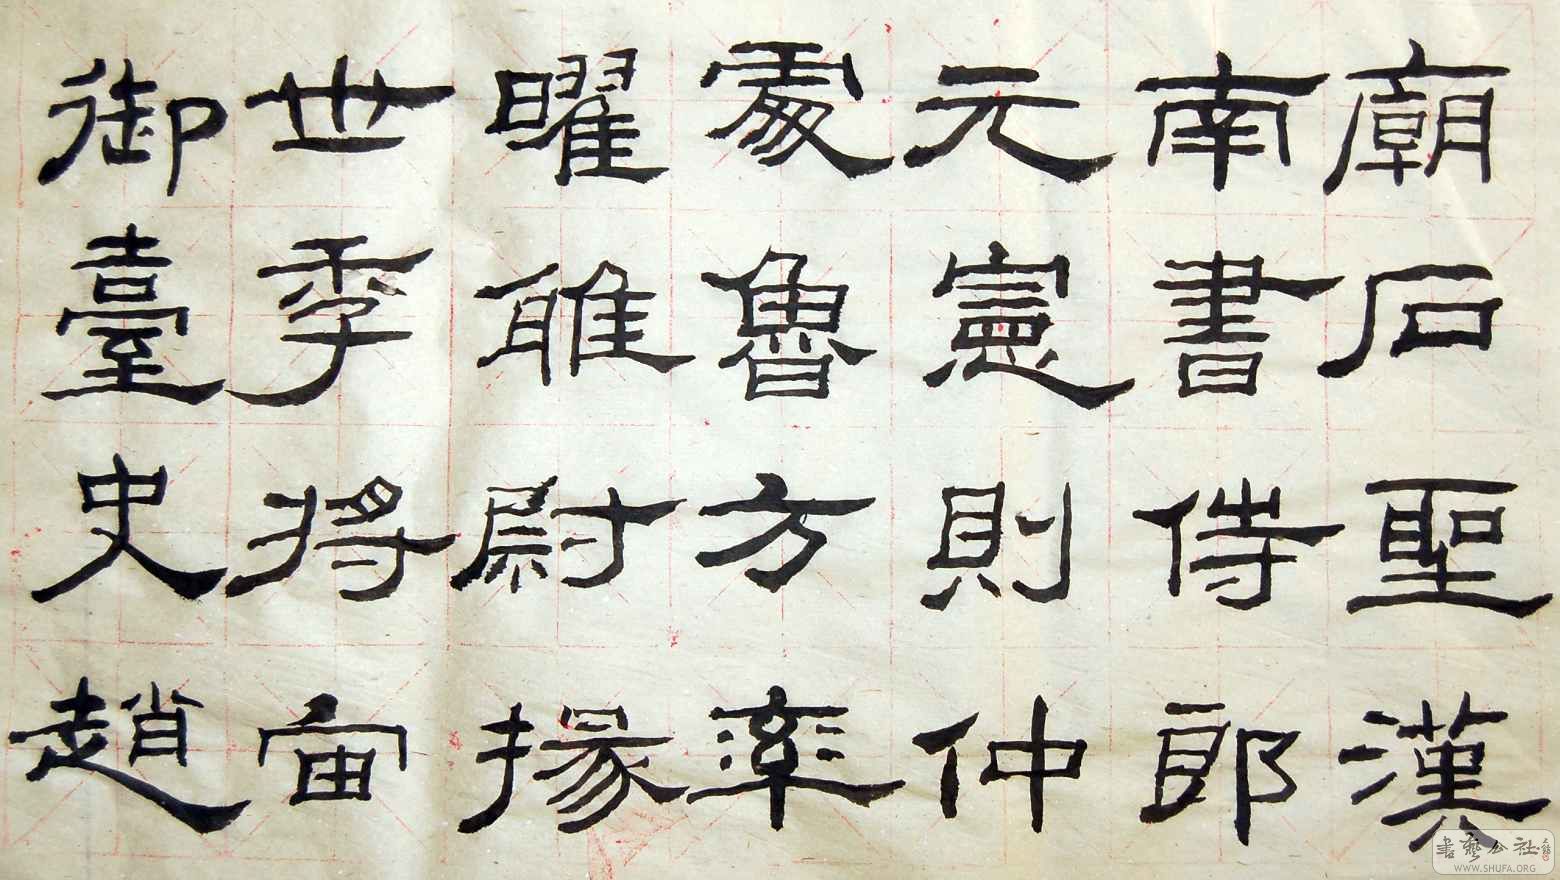 廟石聖漢
南書侍郎
元憲則仲
魯方率
曜尉揚
世季將宙
御臺史趙
書藝公社
WWW.SHUFA.ORG